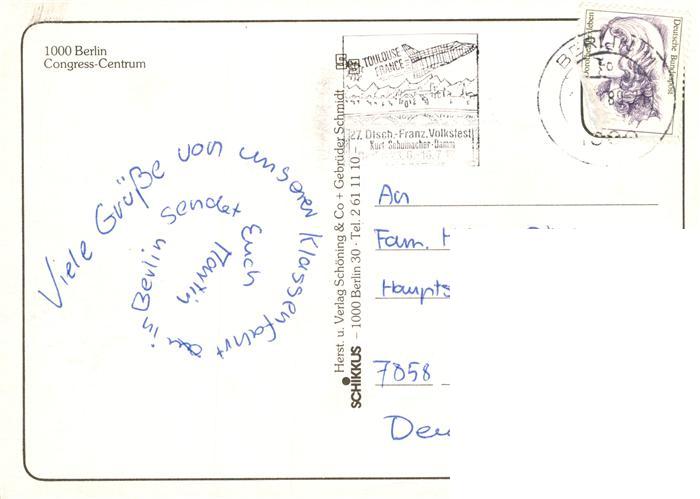 1000 Berlin
Congress-Centrum
TOULOUSE
FRANCE
27. Dtsch.-Franz. Volksfest
Kurt-Schumacher-Damm
Deutsche Bundespost
Viele Grüße von unserer Klassenfahrt in Berlin sendet Euch Martin
Herst. u. Verlag Schöning & Co + Gebrüder Schmidt
SCHIKKUS – 1000 Berlin 30 · Tel. 2 61 11 10 –
An
Fam.
7858